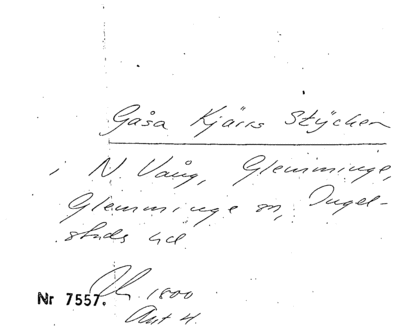 Gåsa Kjärrs Stÿcken
i N Vång, Glemminge,
Glemminge sn, Ingel-
stads hd
Nr 7557. 1800
Akt 4.